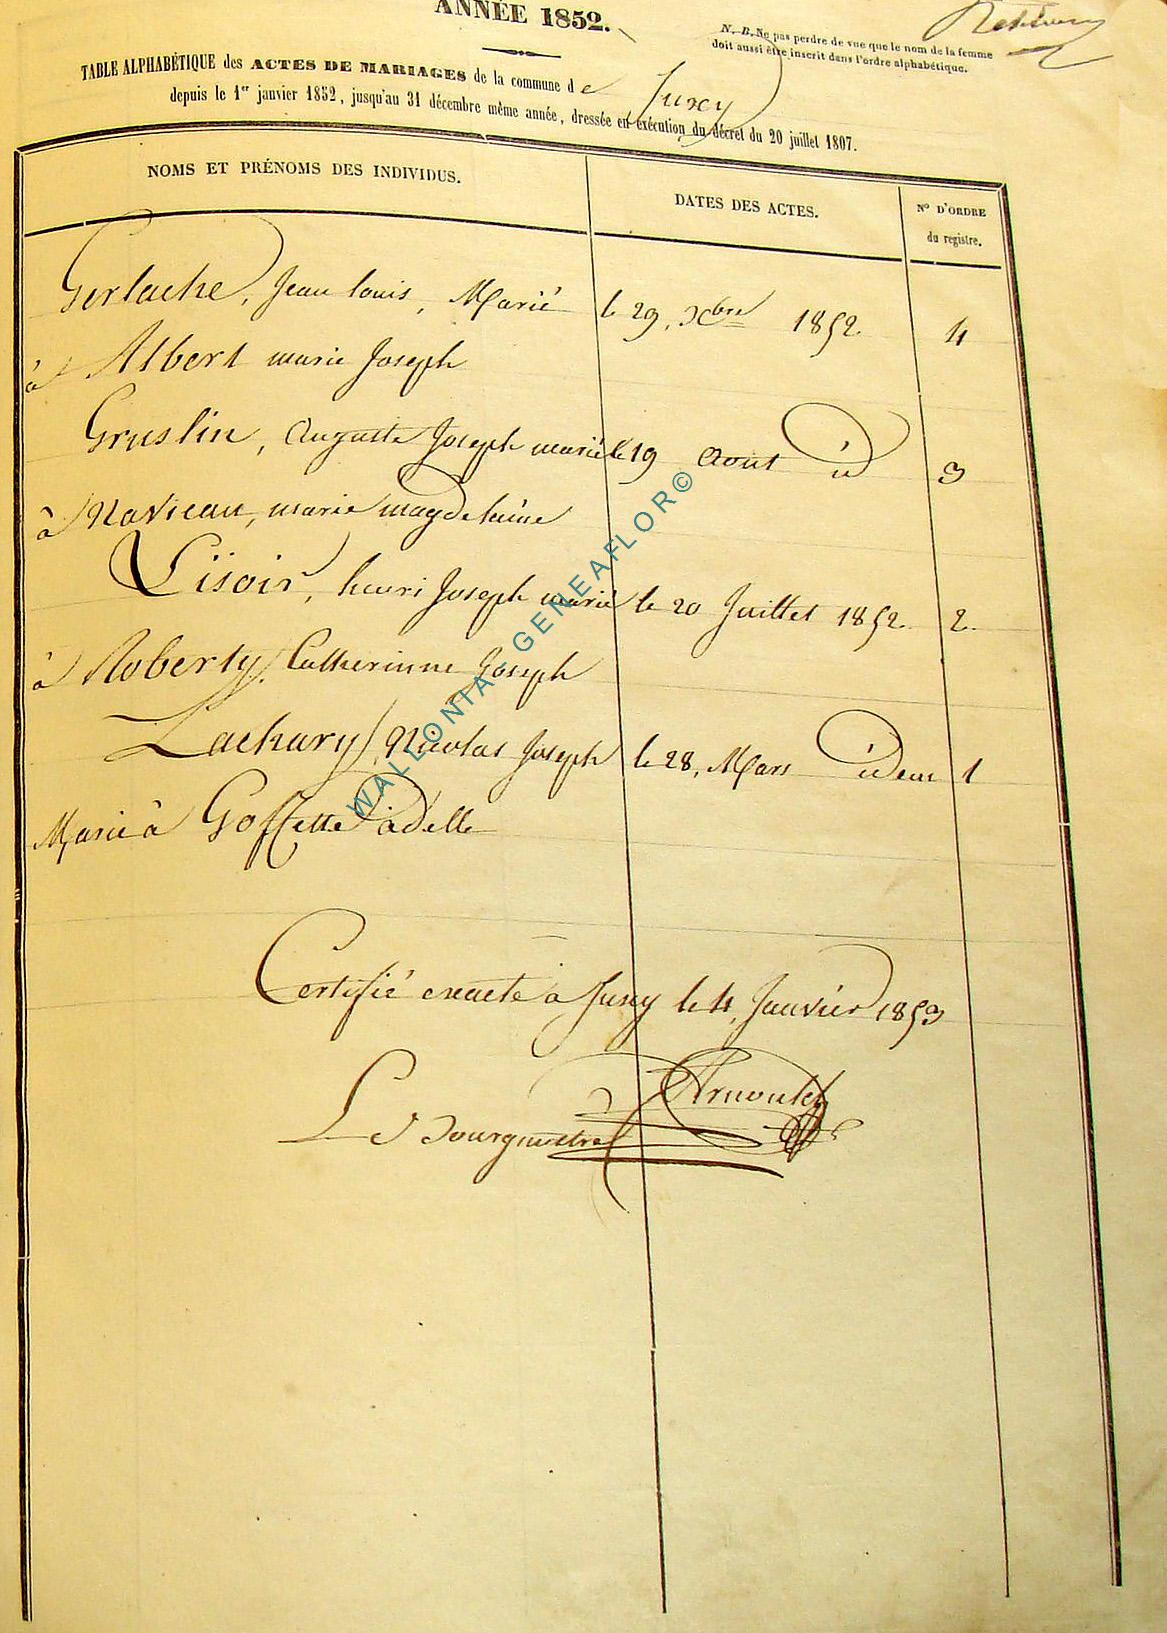 ANNÉE 1852.
N. B. Ne pas perdre de vue que le nom de la femme
doit aussi être inscrit dans l'ordre alphabétique.
TABLE ALPHABÉTIQUE des ACTES DE MARIAGES de la commune de Juzcy
depuis le 1er janvier 1852, jusqu'au 31 décembre même année, dressée en exécution du décret du 20 juillet 1807.
NOMS ET PRÉNOMS DES INDIVIDUS. DATES DES ACTES. N° D'ORDRE
du registre.
Gerlache, Jean louis, Marié le 29, Xbre 1852. 4
à Albert marie Joseph
Gruslin, Auguste Joseph marié le 19 Aout id 3
à Navieau, marie magdelaine
Lisoir, henri Joseph marié le 20 Juillet 1852. 2.
à Roberty, Catherinne Joseph
Zachary, Nicolas Joseph le 28, Mars idem 1
Marié à Goffette adelle
Certifié exacte a Jusey le 4, Janvier 1853
Le Bourgmestre Arnould
WALLONIA GENEAFLOR©